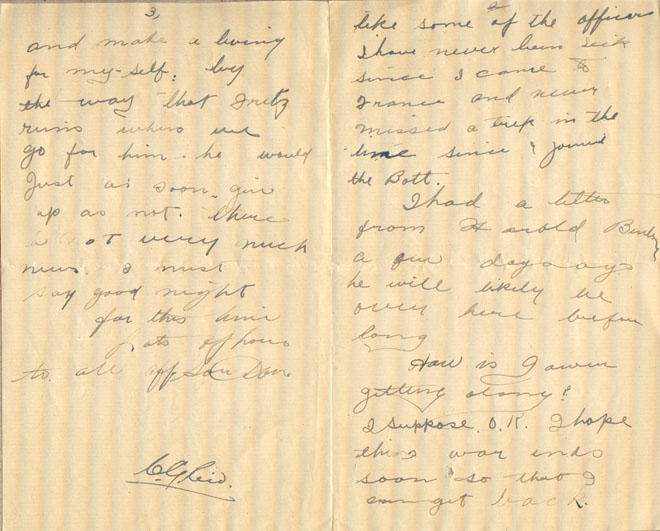 2
like some of the officers
I have never been sick
since I came to
France and never
missed a trip in the
line since I joined
the Batt.
I had a letter
from Harold
a few days ago
he will likely be
over here before
long
How is
getting along?
I suppose O.K. I hope
this war ends
soon so that I
can get back.
3,
and make a living
for my-self. by
the way that Fritz
runs when we
go for him. he would
Just as soon give
up as not. there
is not very much
news. I must
say good night
for this time
of
to all
C.G. Reid.